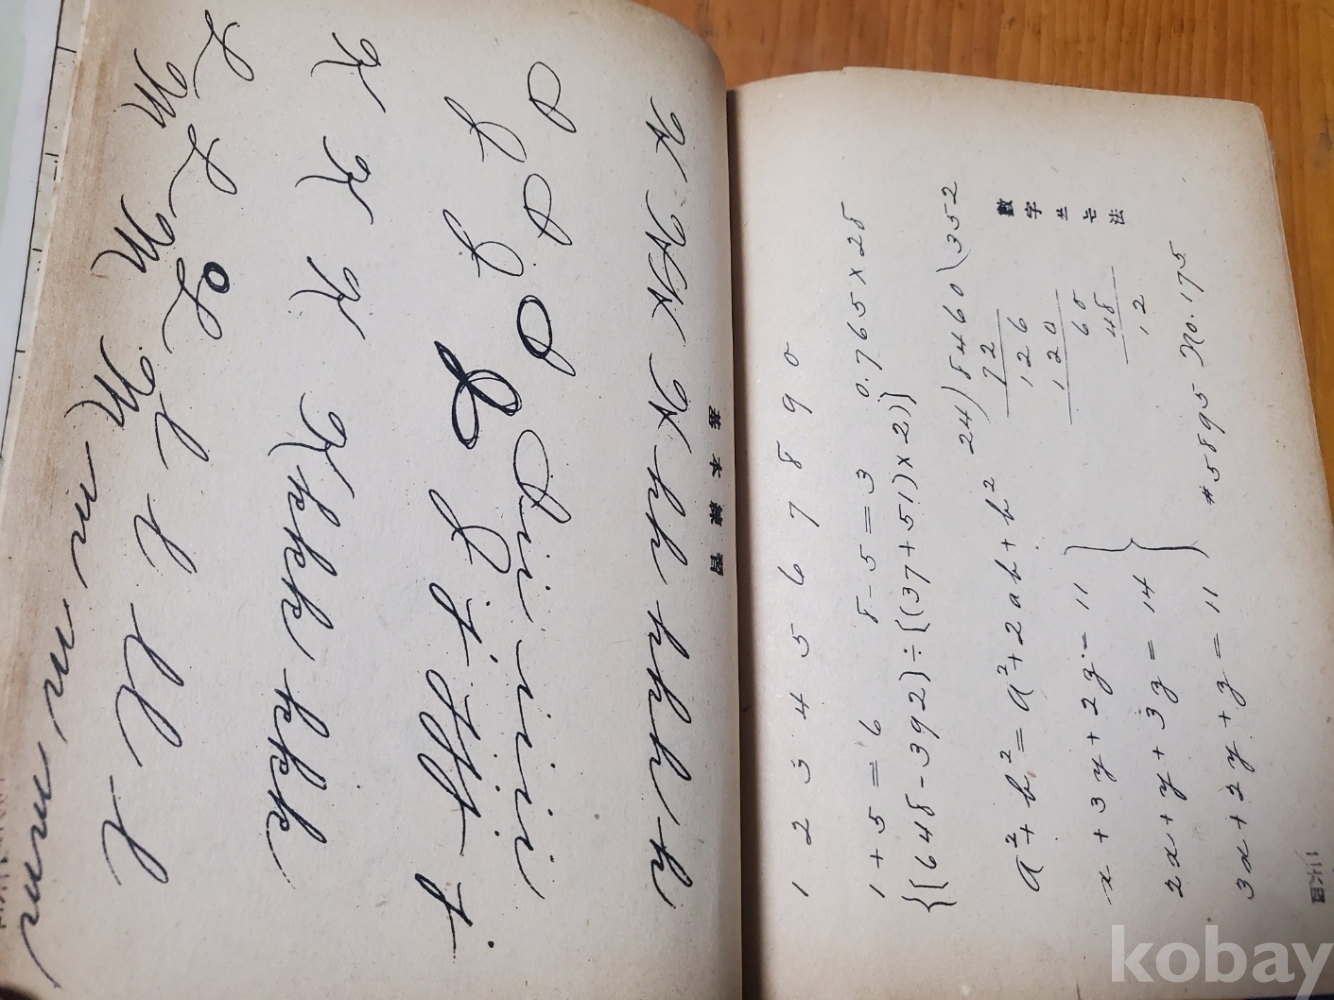 基本練習
H H H H h h h h h h
I I I I i i i i i
J J J J j j j j j
K K K K k k k k k k
L L L l l l l l
M M M m m m m
數字쓰는法
1 2 3 4 5 6 7 8 9 0
1+5=6 8-5=3 0.765×28
{(648-392)÷{(37+51)×2)}
24)8460\352
72
126
120
60
48
12
a²+b²=a²+2ab+b²
x+3y+2z=11
2x+y+3z=14
3x+2y+z=11
#5895 No.175
kobay